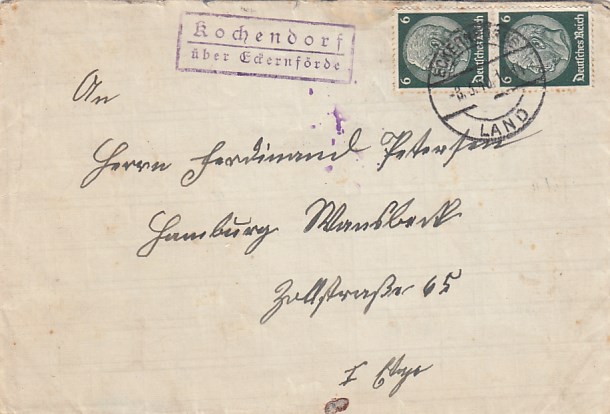 Kochendorf
über Eckernförde
6 Deutsches Reich
6 Deutsches Reich
LAND
An
Herrn Ferdinand Petersen
Hamburg Wansbeck
Zollstraße 65
I Etge